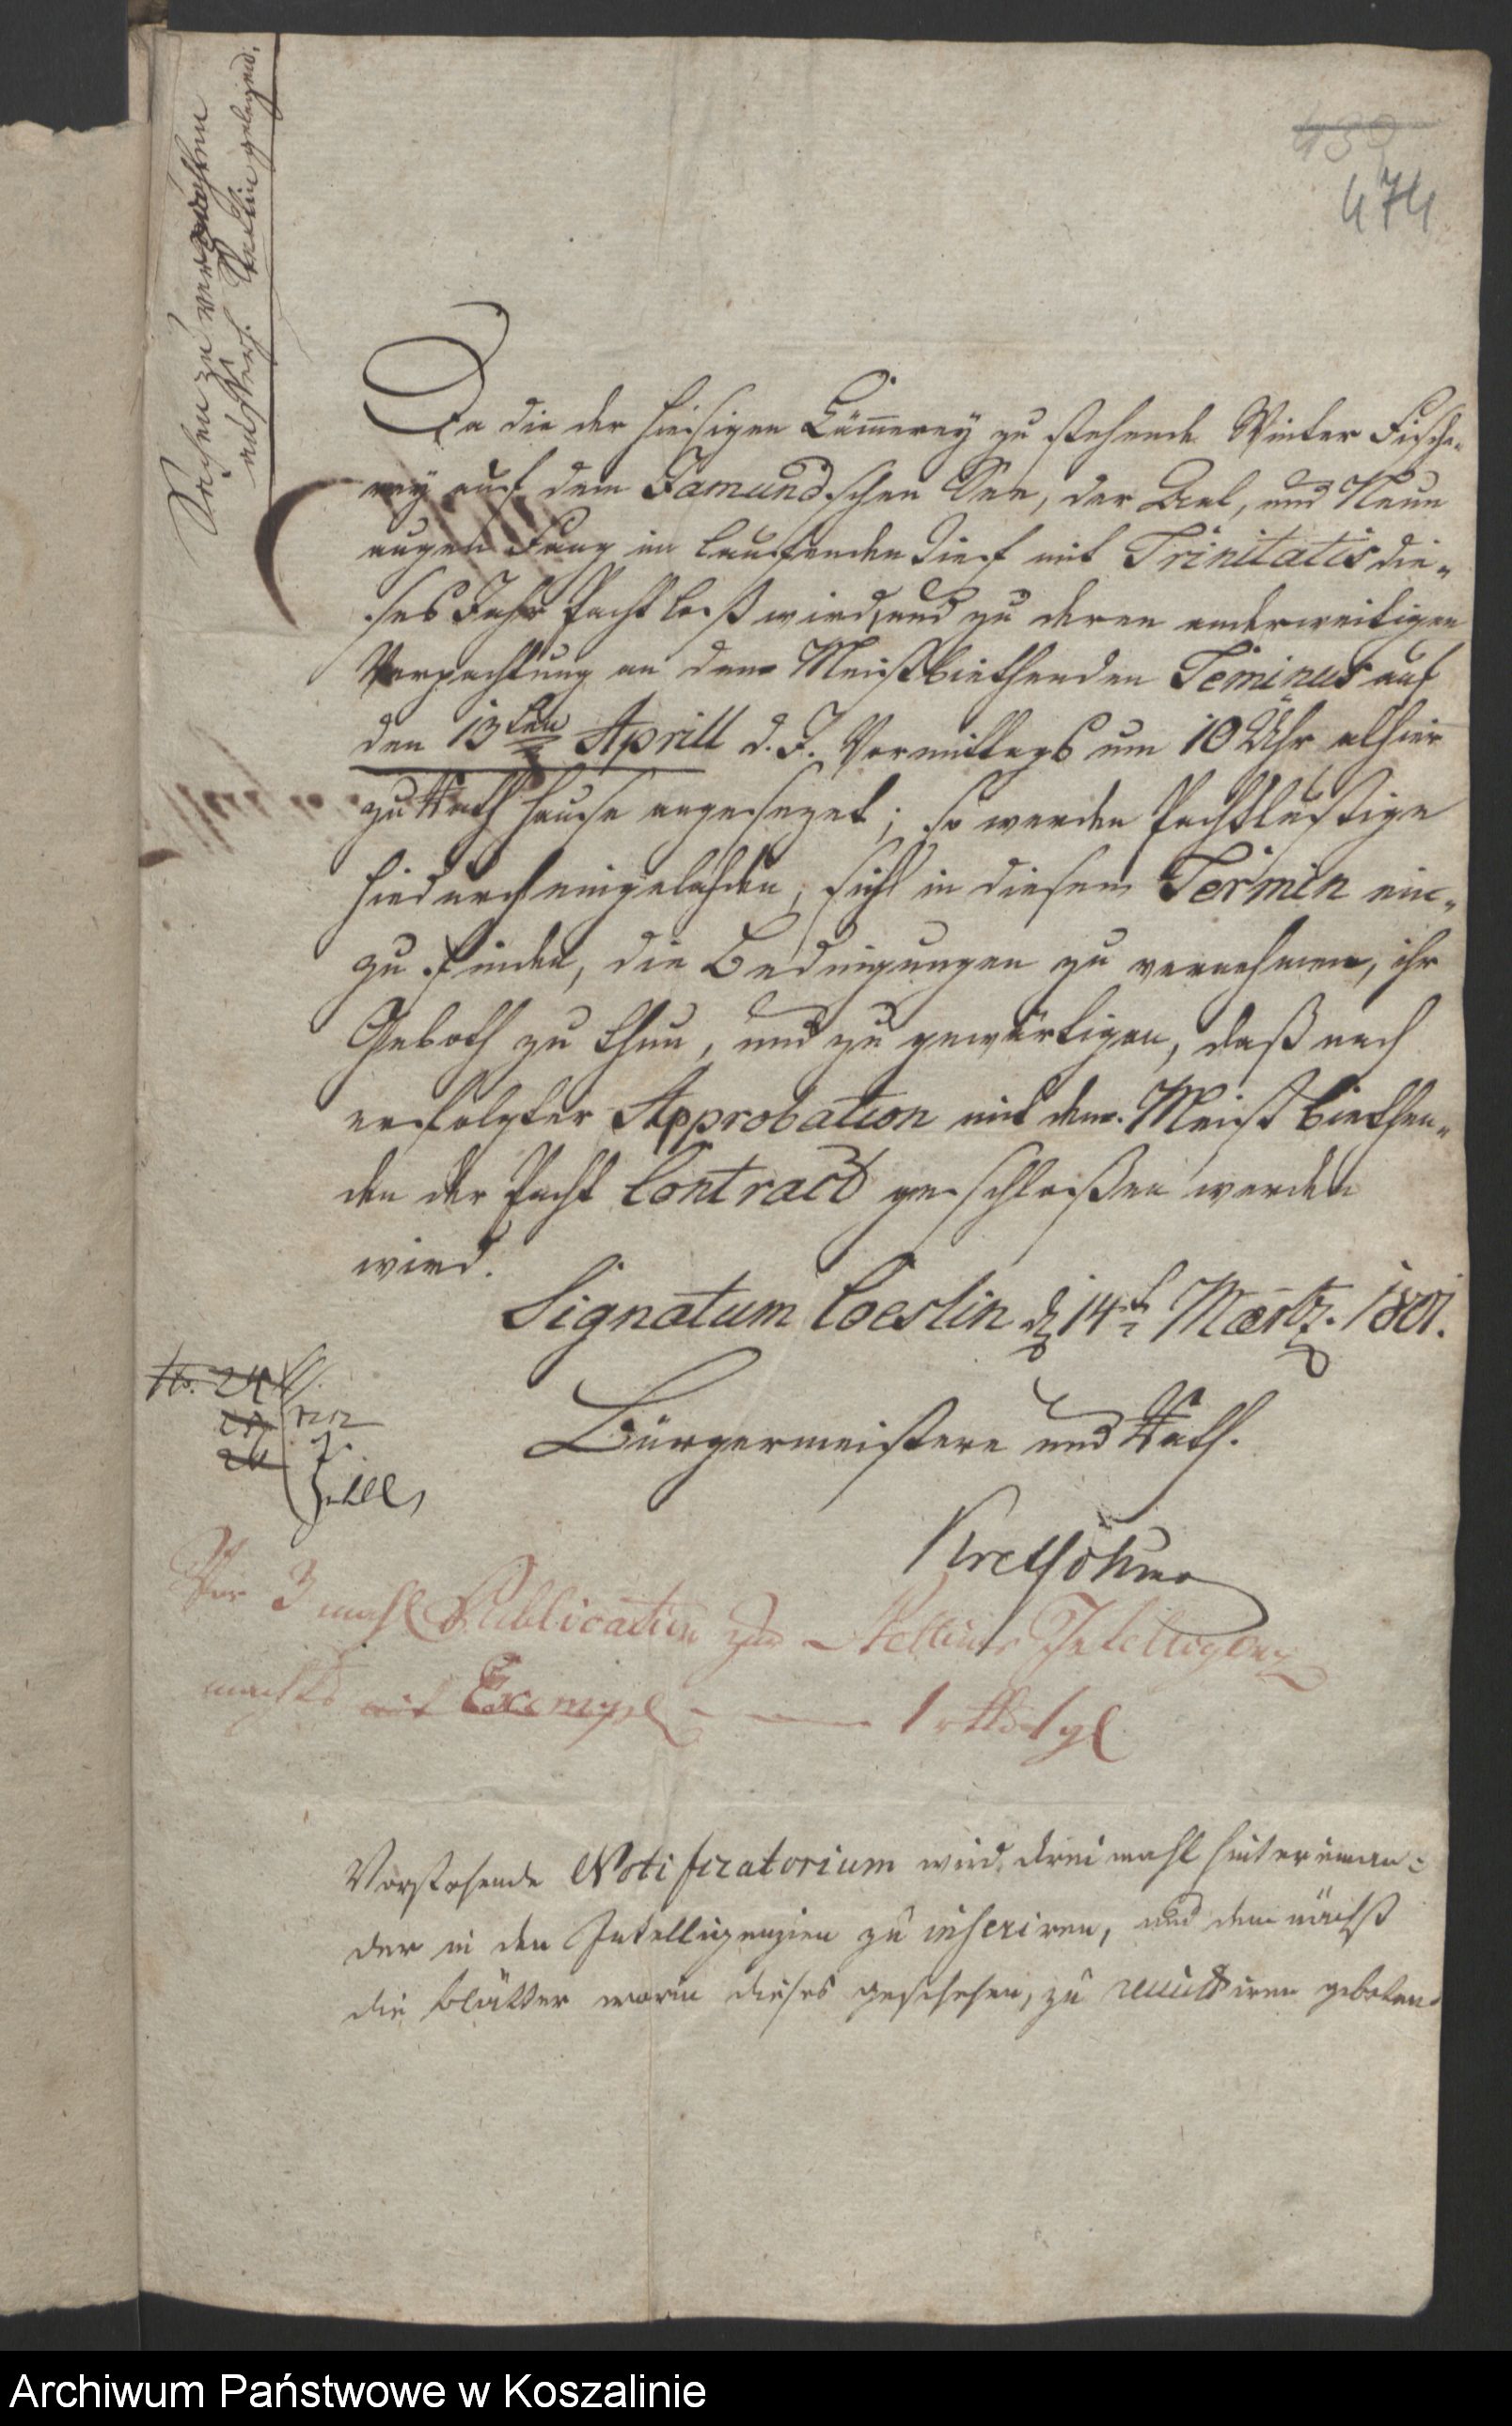 439
474
Sachen zu verpachten
außerh. Stettin gelegend.
Da die der hiesigen Cämmerey zu stehende Winter Fische-
rey auf dem Jamundschen See, der Aal, und Neun
augen Fang im laufenden Tief mit Trinitatis die-
ses Jahr Pacht loß wird, und zu deren anderweitigen
Verpachtung an dem Meistbiethenden Teminus auf
den 13ten Aprill d. J. Vormittags um 10 Uhr alhier
zu Rath hause angesezet; so werden Pachtlustige
hiedurch eingelahden, sich in diesem Termin ein-
zu finden, die Bedingungen zu vernehmen, ihr
Geboth zu thun, und zu gewärtigen, daß nach
erfolgter Approbation mit dem Meist biethen-
den der Pacht Contract geschloßen werden
wird.
Signatum Coeslin d 14t Maertz. 1801.
No. 24
25
26
Bürgermeistere und Rath.
Vor 3 mahl Publication zur Stettiner Intelligenz
macht mit Exempl — 1 rthl 1 gl
Vorstehende Notificatorium wird drei mahl hintereinan-
der in den Intelligenzien zu inseriren, und dem nächst
die Blätter worin dieses geschehen, zu remittiren gebeten
Archiwum Państwowe w Koszalinie